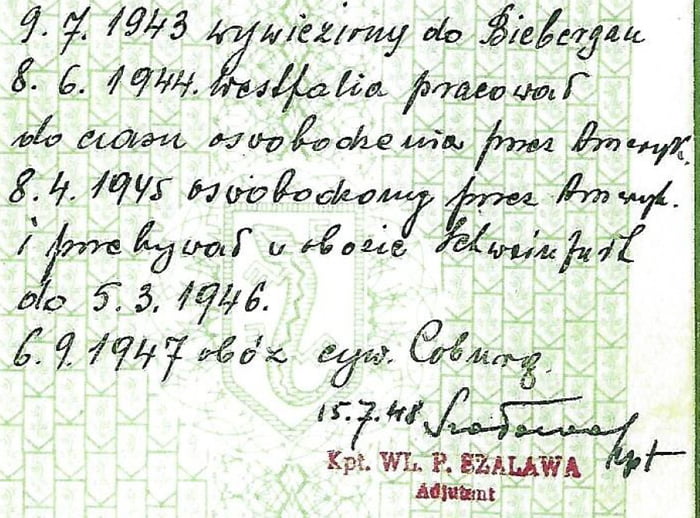 9. 7. 1943 wywieziony do Biebergau
8. 6. 1944. Westfalia pracował
do czasu osvobodzenia przez Ameryk.
8. 4. 1945 osvobodzony przez Ameryk.
i przebywał v obozie Schweinfurt
do 5. 3. 1946.
6. 9. 1947 obóz cyw. Coburg.
15.7.48 kpt
Kpt. WL. P. SZALAWA
Adjutant